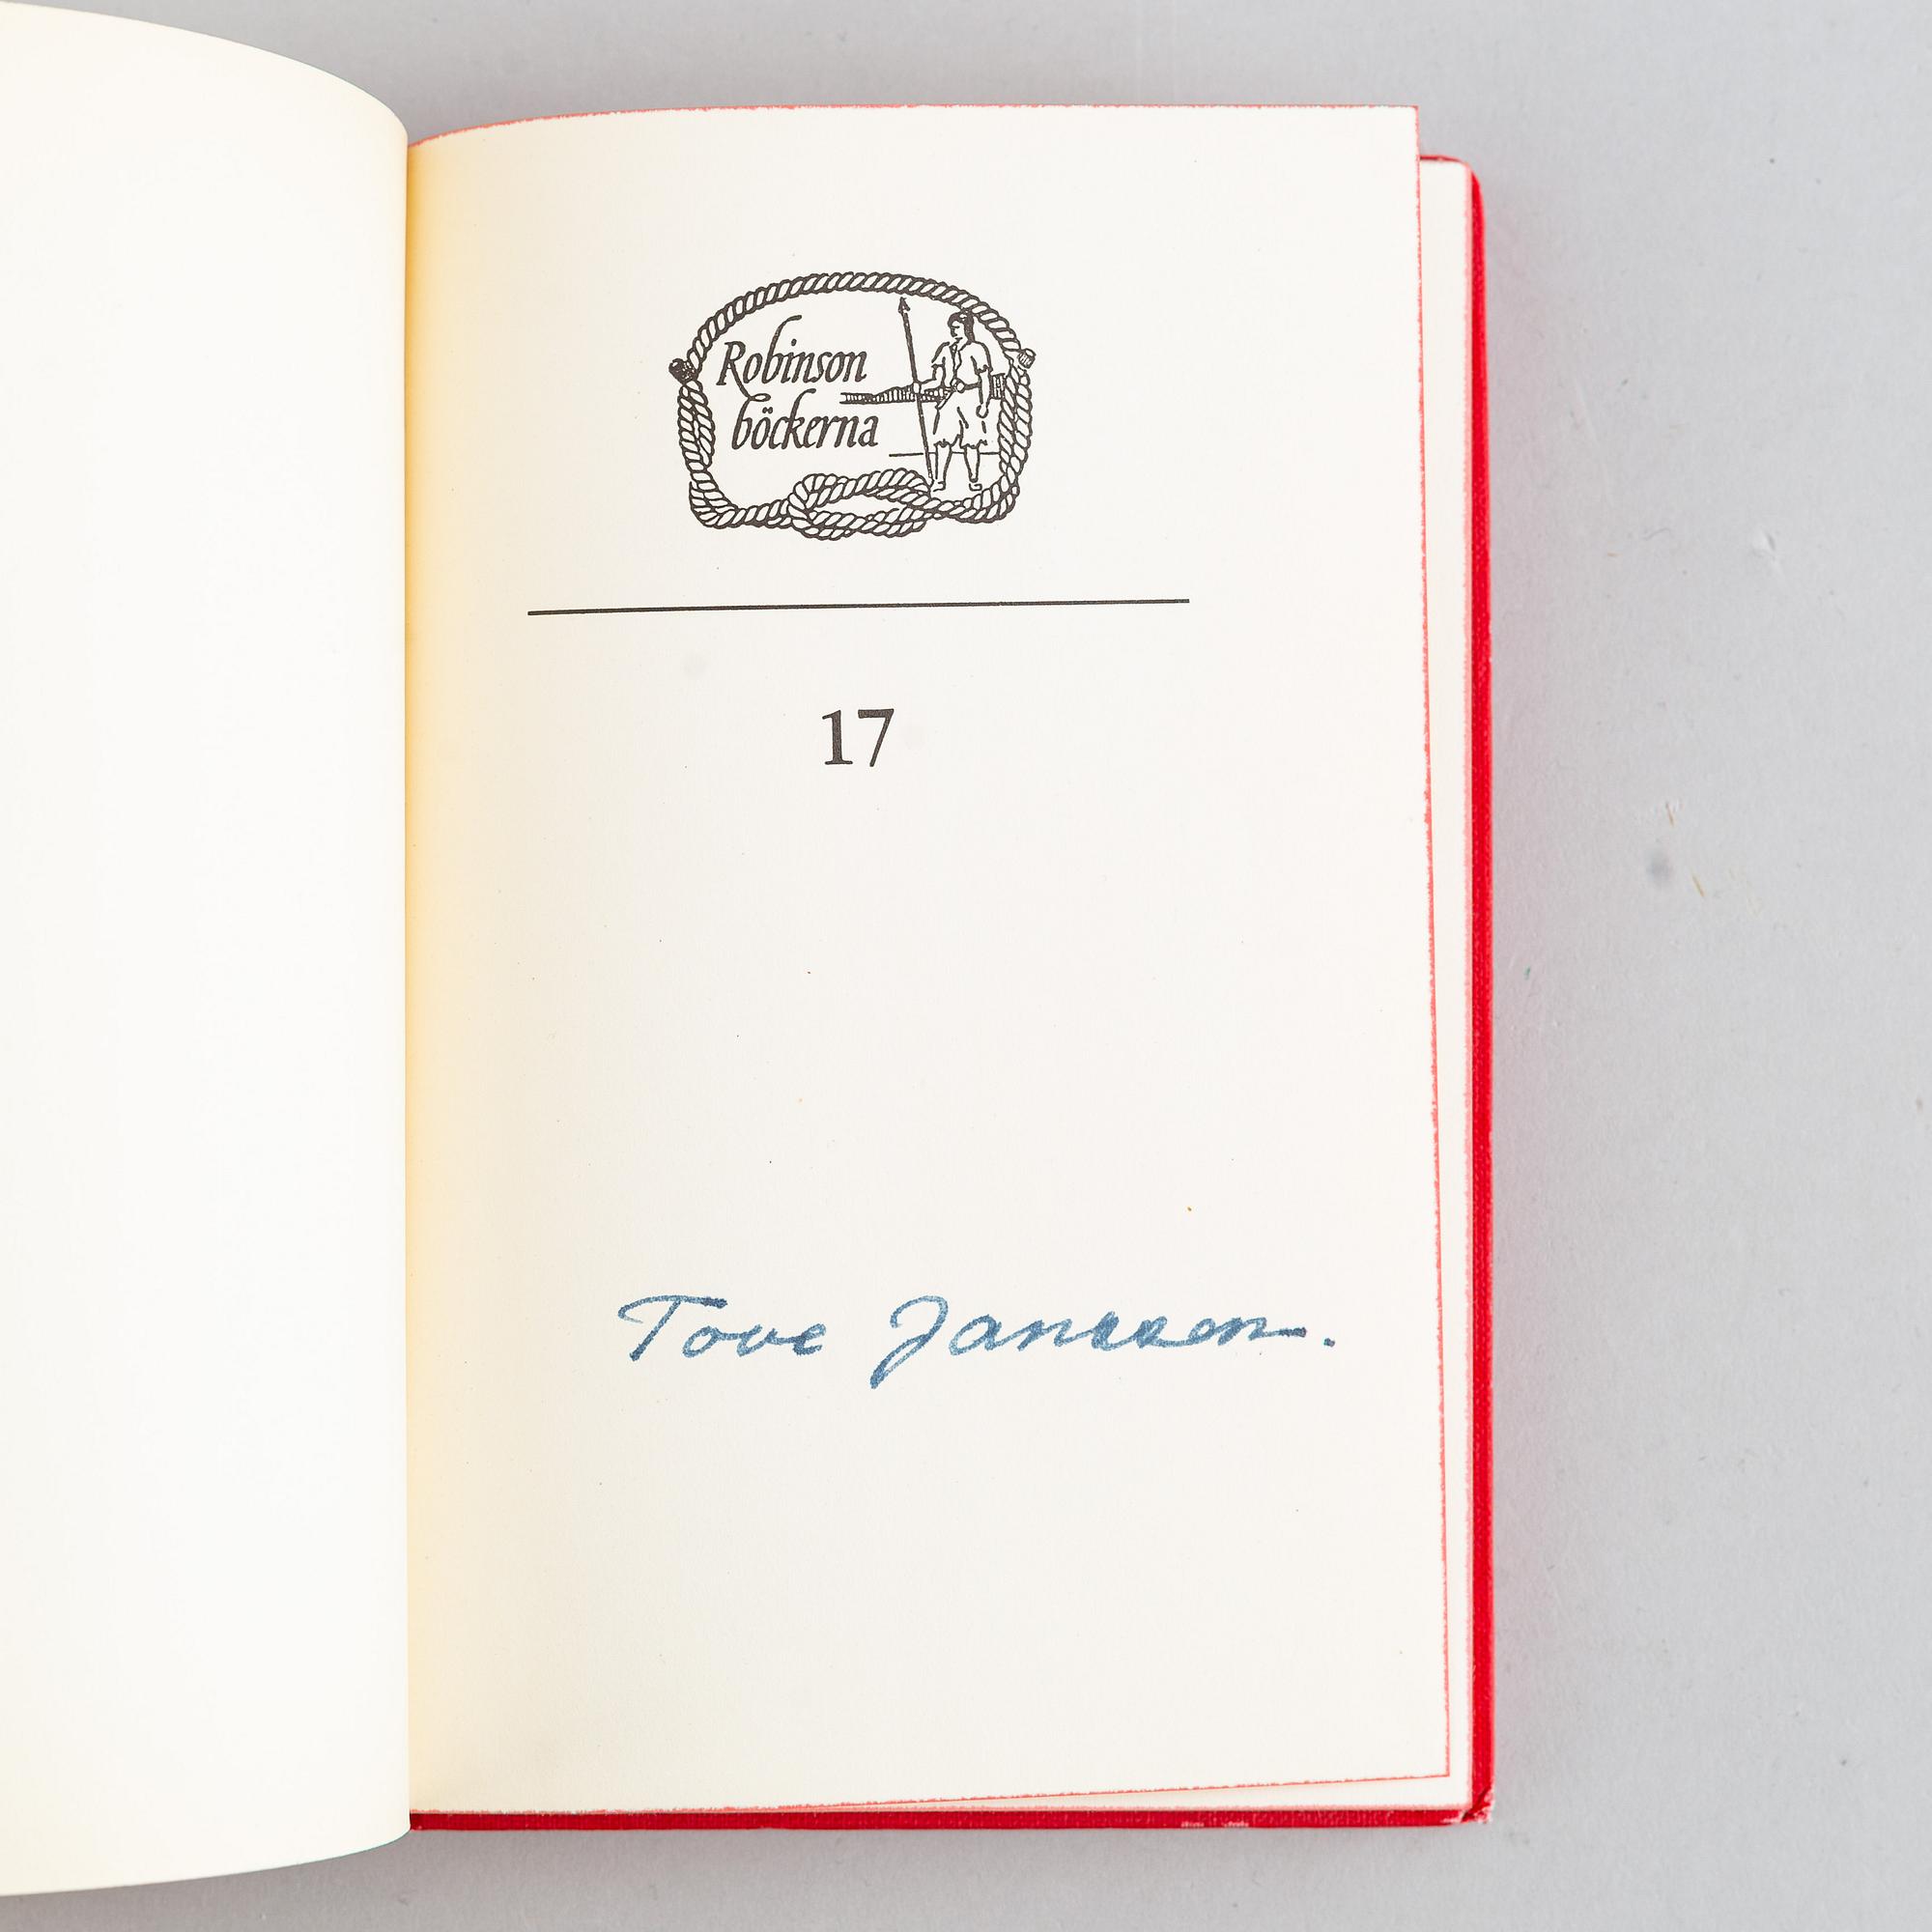 Robinson
böckerna
17
Tove Jansson.